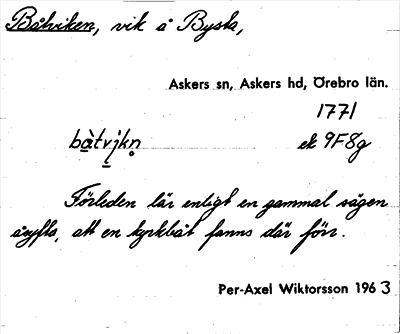 Båtviken, vik å Bysta,
Askers sn, Askers hd, Örebro län.
1771
bà̱tvi̱jkn̥ ek 9F8g
Förleden lär enligt en gammal sägen
åsyfta, att en kyrkbåt fanns där förr.
Per-Axel Wiktorsson 1963